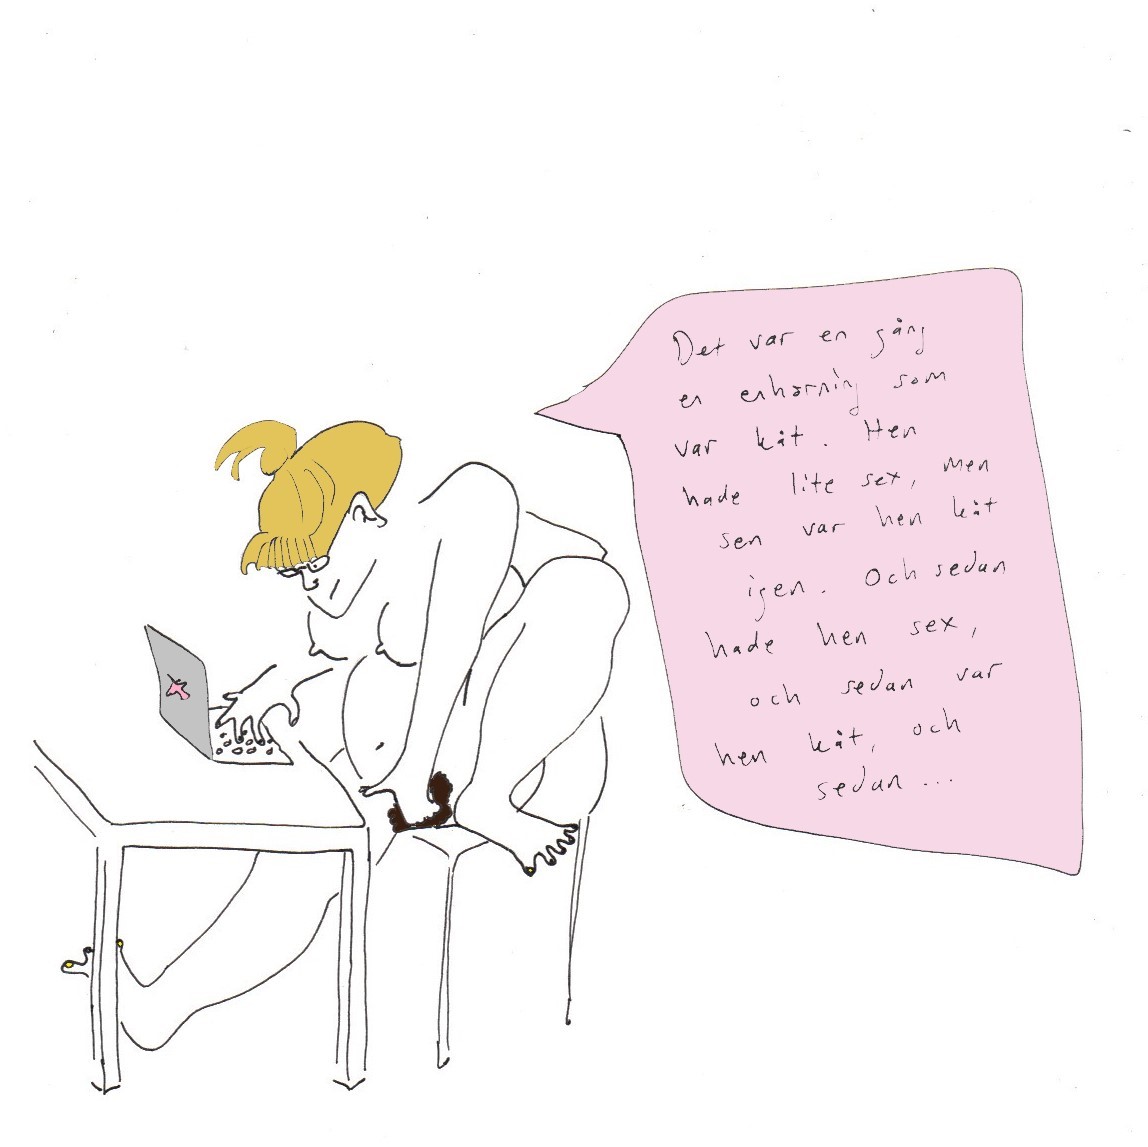 Det var en gång
en enhörning som
var kåt. Hen
hade lite sex, men
sen var hen kåt
igen. Och sedan
hade hen sex,
och sedan var
hen kåt, och
sedan ...